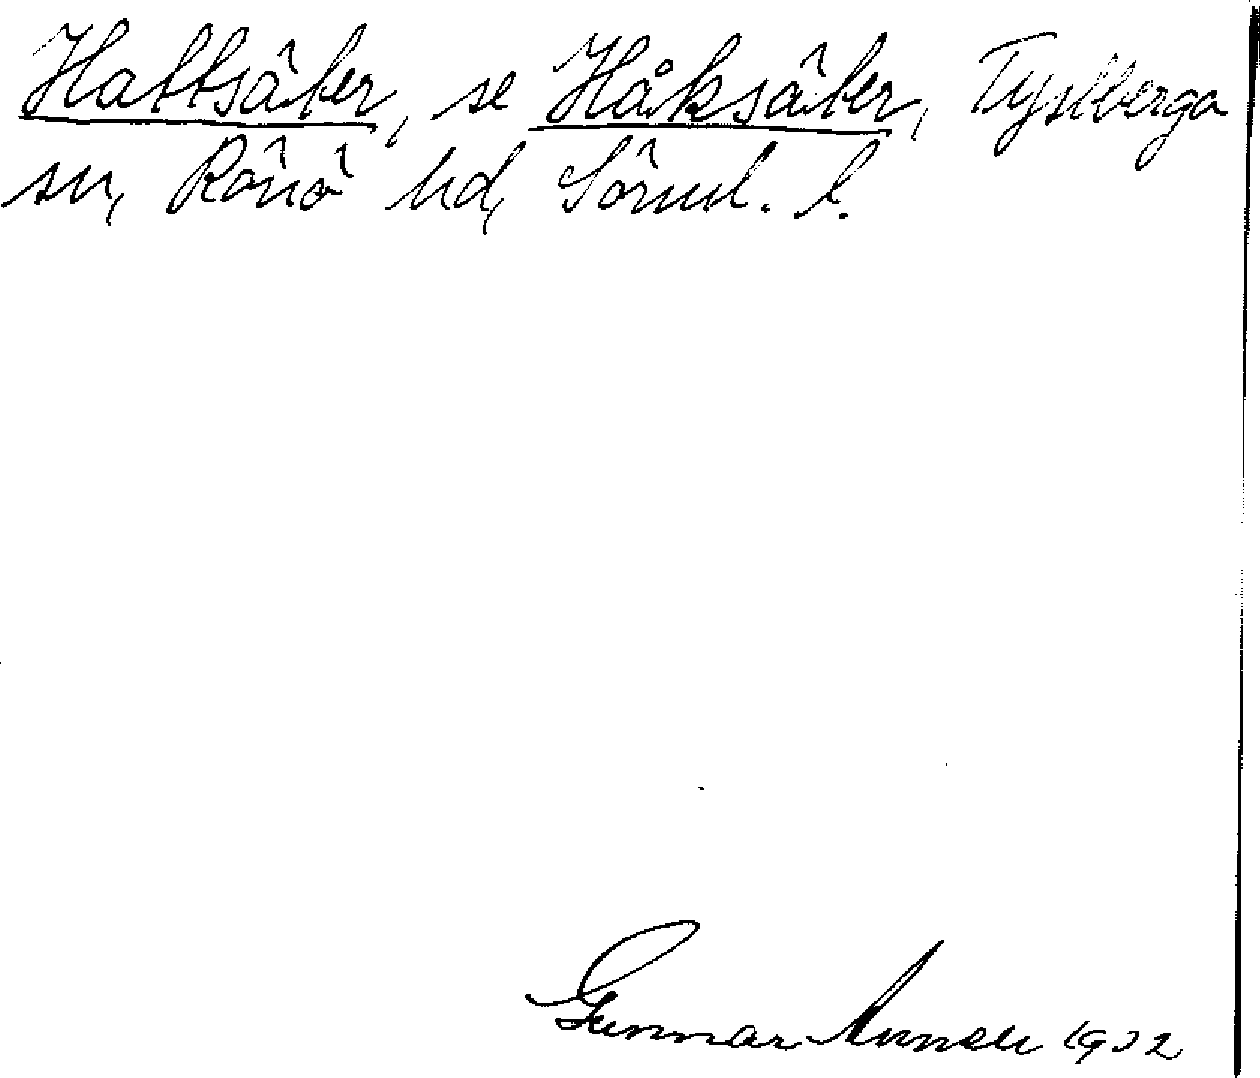 Hattsåker, se Håksåker, Tystberga
sn, Rönö hd, Sörml. l.
Gunnar 1932